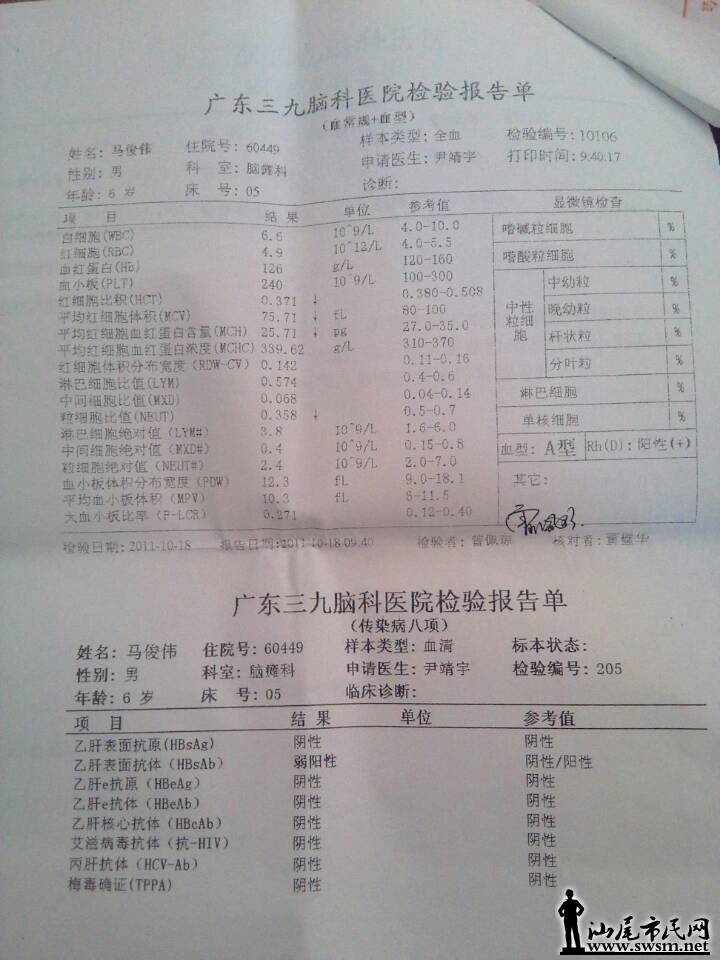 广东三九脑科医院检验报告单
(血常规+血型)
姓名: 马俊伟 住院号: 60449 样本类型: 全血 检验编号: 10106
性别: 男 科 室: 脑瘫科 申请医生: 尹靖宇 打印时间: 9:40:17
年龄: 6 岁 床 号: 05 诊断:
项 目 结 果 单位 参考值 显微镜检查
白细胞(WBC) 6.6 10^9/L 4.0-10.0 嗜碱粒细胞 %
红细胞(RBC) 4.9 10^12/L 4.0-5.5 嗜酸粒细胞 %
血红蛋白(Hb) 126 g/L 120-160
血小板(PLT) 240 10^9/L 100-300 中性粒细胞 中幼粒 %
红细胞比积(HCT) 0.371 ↓ 0.380-0.508 晚幼粒 %
平均红细胞体积(MCV) 75.71 ↓ fL 80-100 杆状粒 %
平均红细胞血红蛋白含量(MCH) 25.71 ↓ pg 27.0-35.0 分叶粒 %
平均红细胞血红蛋白浓度(MCHC) 339.62 g/L 310-370
红细胞体积分布宽度(RDW-CV) 0.142 0.11-0.16
淋巴细胞比值(LYM) 0.574 0.4-0.6 淋巴细胞 %
中间细胞比值(MXD) 0.068 0.04-0.14
粒细胞比值(NEUT) 0.358 ↓ 0.5-0.7 单核细胞 %
淋巴细胞绝对值(LYM#) 3.8 10^9/L 1.6-6.0
中间细胞绝对值(MXD#) 0.4 10^9/L 0.15-0.8 血型: A型 Rh(D): 阳性(+)
粒细胞绝对值(NEUT#) 2.4 10^9/L 2.0-7.0
血小板体积分布宽度(PDW) 12.3 fL 9.0-18.1 其它:
平均血小板体积(MPV) 10.3 fL 6-11.5
大血小板比率(P-LCR) 0.271 0.12-0.40
检验日期: 2011-10-18 报告日期: 2011-10-18 09:40 检验者: 曾佩 核对者:
广东三九脑科医院检验报告单
(传染病八项)
姓名: 马俊伟 住院号: 60449 样本类型: 血清 标本状态:
性别: 男 科室: 脑瘫科 申请医生: 尹靖宇 检验编号: 205
年龄: 6 岁 床 号: 05 临床诊断:
项 目 结 果 单 位 参考值
乙肝表面抗原(HBsAg) 阴性 阴性
乙肝表面抗体(HBsAb) 弱阳性 阴性/阳性
乙肝e抗原(HBeAg) 阴性 阴性
乙肝e抗体(HBeAb) 阴性 阴性
乙肝核心抗体(HBcAb) 阴性 阴性
艾滋病毒抗体(抗-HIV) 阴性 阴性
丙肝抗体(HCV-Ab) 阴性 阴性
梅毒确证(TPPA) 阴性 阴性
汕尾市民网
www.swsm.net